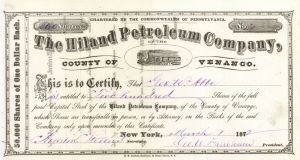 CHARTERED BY THE COMMONWEALTH OF PENNSYLVANIA.
The Hiland Petroleum Company,
OF THE
COUNTY OF VENANGO.
50,000 Shares of One Dollar Each.
This is to Certify, That Geo. W. Abbe
is entitled to Five Hundred Shares of the full
paid Capital Stock of the Hiland Petroleum Company, of the County of Venango,
which Shares are transferable in person, or by Attorney, on the Books of the said
Company only upon surrender of this Certificate.
New York, March 1 187
Secretary. President.